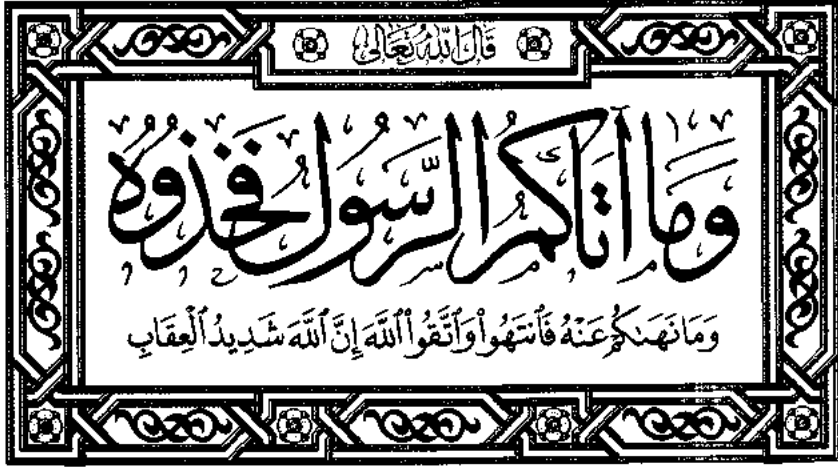 قَالَ اللّٰهُ تَعَالَى
وَمَا آتَاكُمُ الرَّسُولُ فَخُذُوهُ
وَمَا نَهَىٰكُمْ عَنْهُ فَٱنتَهُوا۟ وَٱتَّقُوا۟ ٱللَّهَ إِنَّ ٱللَّهَ شَدِيدُ ٱلْعِقَابِ